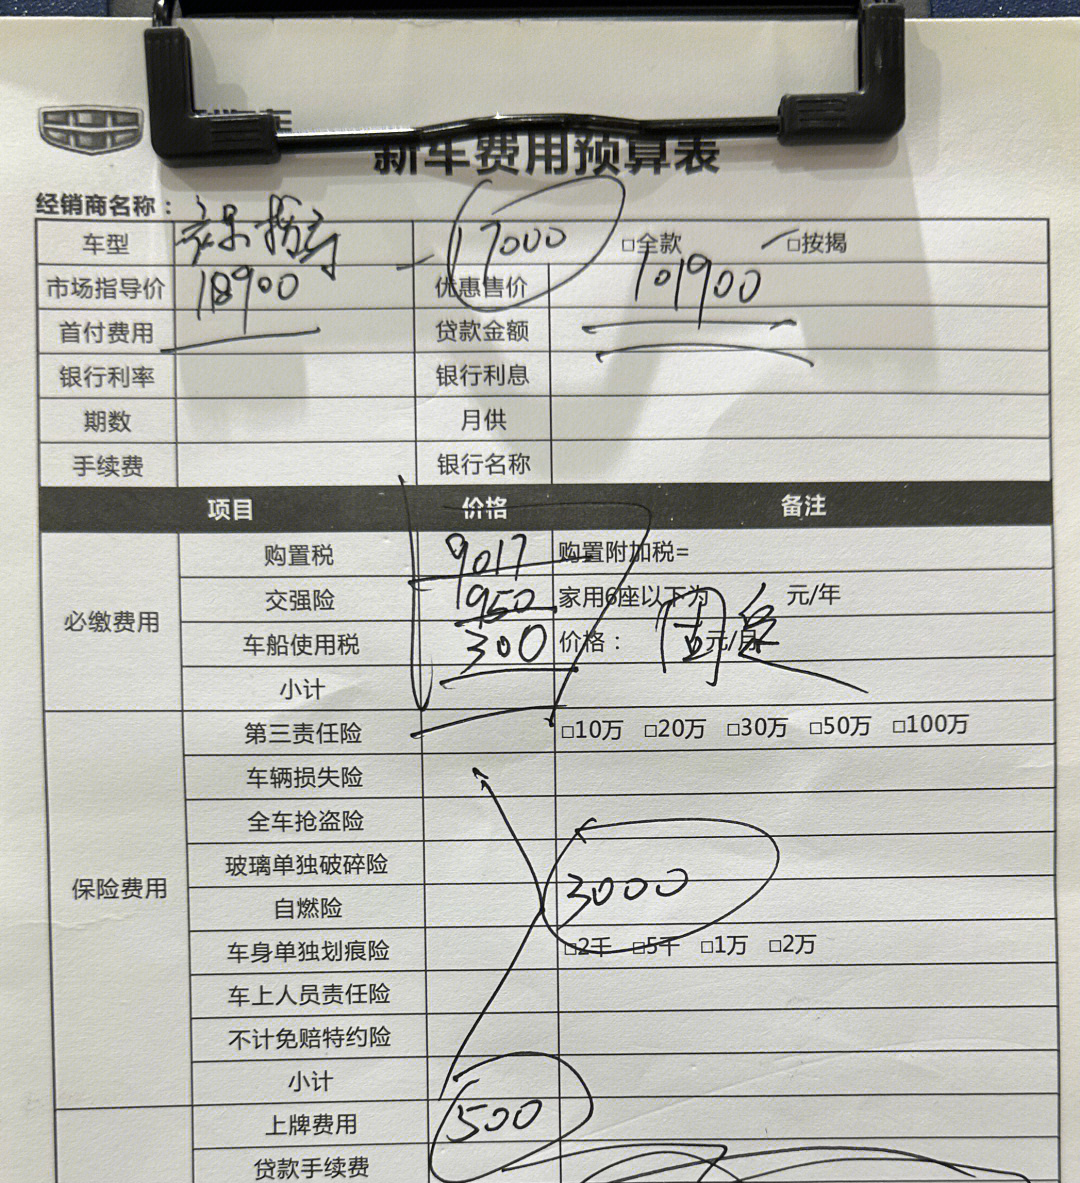 新车费用预算表
经销商名称：
车型 17000 □全款 □按揭
市场指导价 118900 优惠售价 101900
首付费用 贷款金额
银行利率 银行利息
期数 月供
手续费 银行名称
项目 价格 备注
必缴费用
购置税 9017 购置附加税=
交强险 950 家用6座以下为 元/年
车船使用税 300 价格： 元/
小计
保险费用
第三责任险 □10万 □20万 □30万 □50万 □100万
车辆损失险
全车抢盗险
玻璃单独破碎险
自燃险 3000
车身单独划痕险 □2千 □5千 □1万 □2万
车上人员责任险
不计免赔特约险
小计
上牌费用 500
贷款手续费